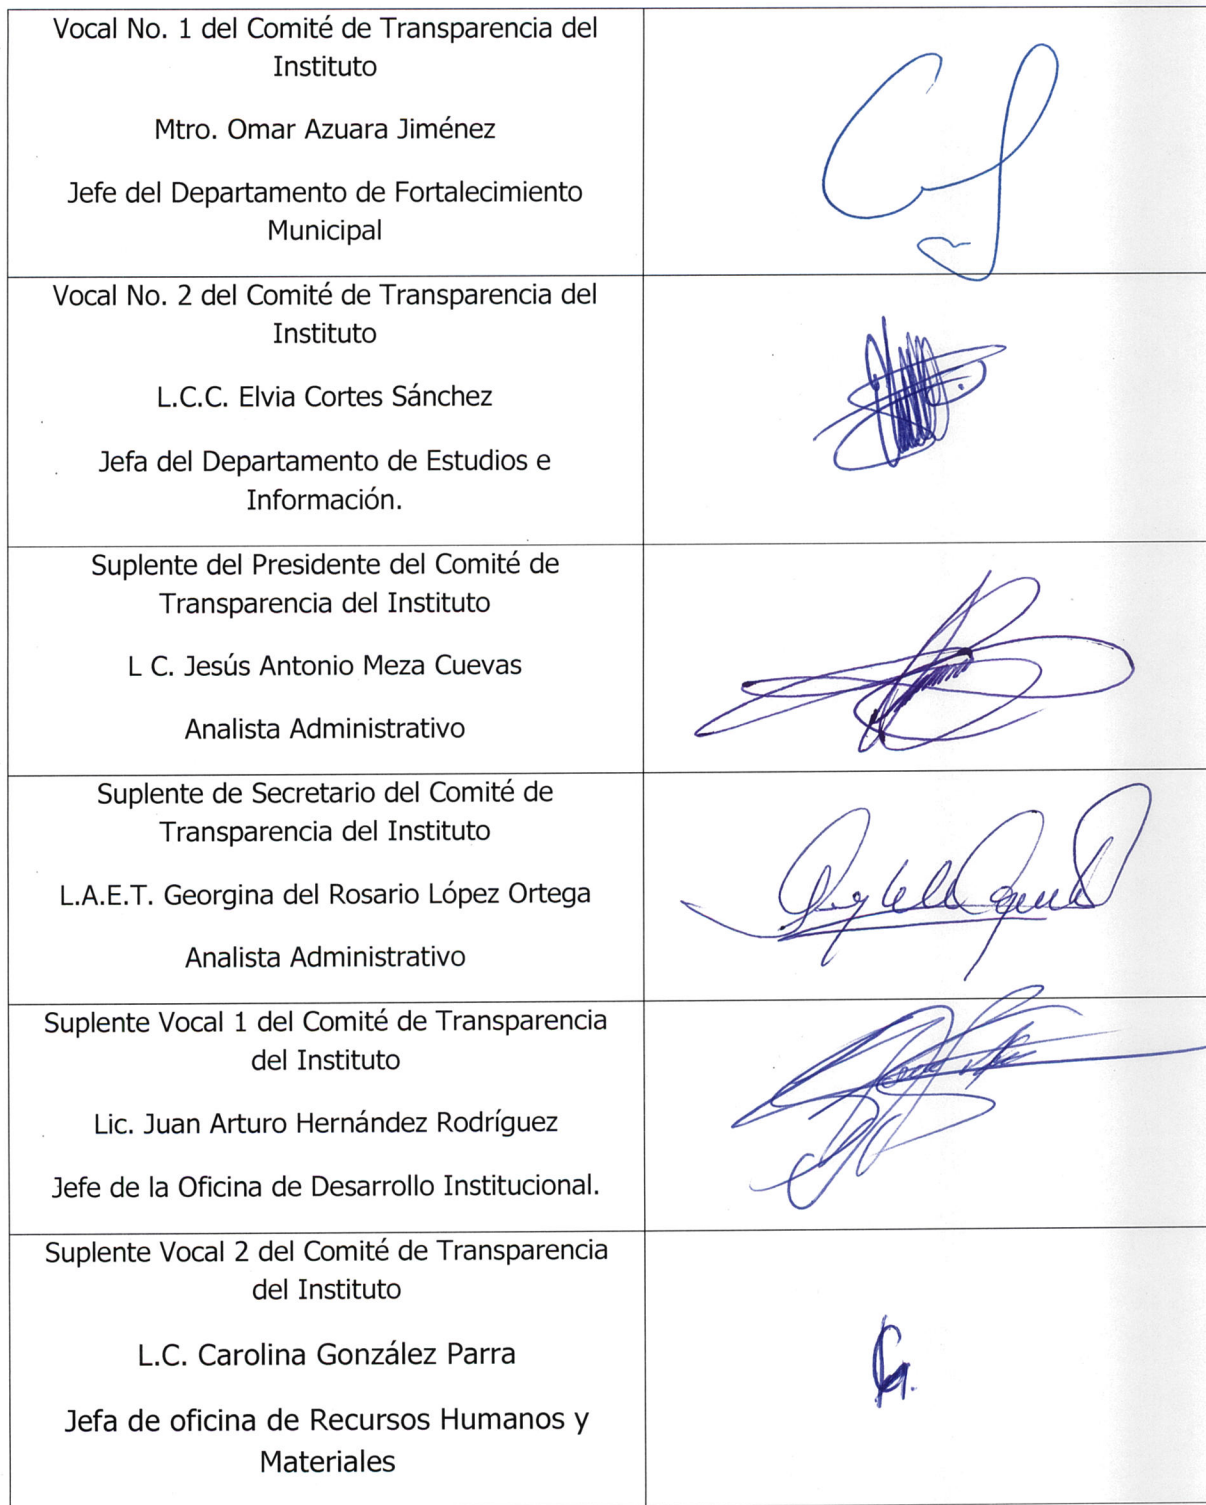 Vocal No. 1 del Comité de Transparencia del
Instituto
Mtro. Omar Azuara Jiménez
Jefe del Departamento de Fortalecimiento
Municipal
Vocal No. 2 del Comité de Transparencia del
Instituto
L.C.C. Elvia Cortes Sánchez
Jefa del Departamento de Estudios e
Información.
Suplente del Presidente del Comité de
Transparencia del Instituto
L C. Jesús Antonio Meza Cuevas
Analista Administrativo
Suplente de Secretario del Comité de
Transparencia del Instituto
L.A.E.T. Georgina del Rosario López Ortega
Analista Administrativo
Suplente Vocal 1 del Comité de Transparencia
del Instituto
Lic. Juan Arturo Hernández Rodríguez
Jefe de la Oficina de Desarrollo Institucional.
Suplente Vocal 2 del Comité de Transparencia
del Instituto
L.C. Carolina González Parra
Jefa de oficina de Recursos Humanos y
Materiales